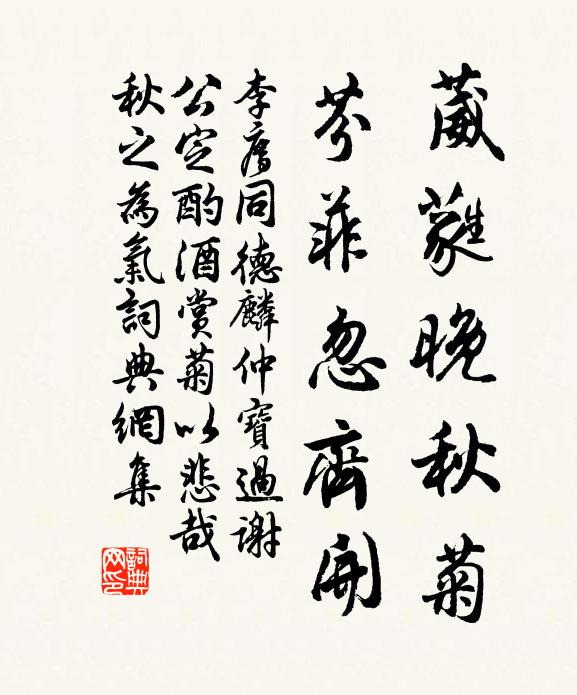 葳蕤晚秋菊
芬菲忽齊開
李廌同德麟仲寶過謝
公定酌酒賞菊以悲哉
秋之為氣詞典網集
詞典网印